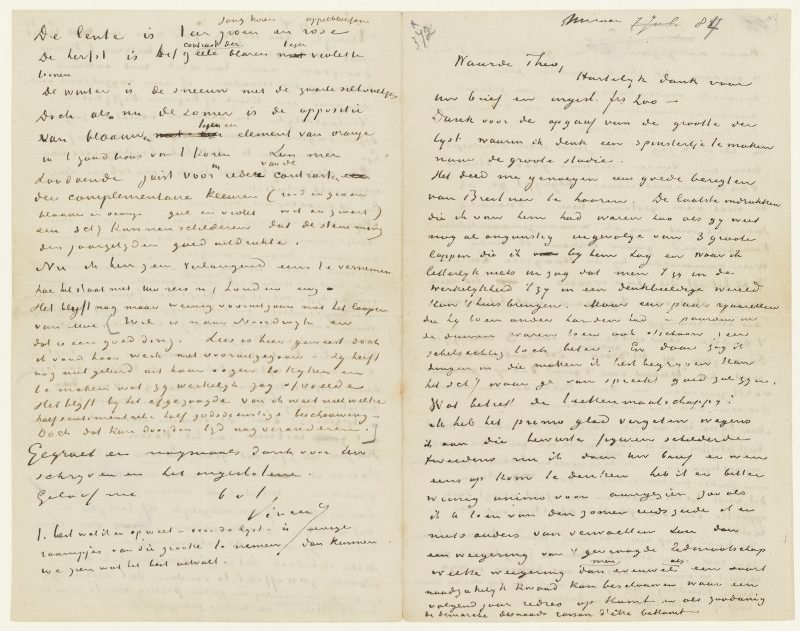 jong koren appelbloesem
De lente is 't en groen en rose
De herfst is het contrast der geele blaren tegen violette
tonnen
De winter is de sneeuw met de zwarte silhouetjes
Doch als nu de zomer is de oppositie
van blaauwen tegen een element van oranje
in 't goud brons van 't koren Zou men
zoodoende juist voor in ieder van de contrasten
der complementaire kleuren (rood en groen
blaauw en oranje geel en violet wit en zwart)
een schij kunnen schilderen dat de stemming
der jaargetyden goed uitdrukte.
Nu ik ben zeer verlangend eens te vernemen
hoe het staat met uw reis n/ Londen enz –
Het blyft nog maar weinig vooruitgaan met het loopen
van Moe [Wil is naar Noordwyk en
dat is een goed ding. Lies is hier geweest doch
ik vond haar werk niet vooruitgegaan zy heeft
nog niet geleerd uit haar oogen te kyken en
te maken wat zy werkelyk zag of voelde
Het blyft by het opgezogde van ik weet niet welke
half sentimenteele half godsdienstige beschouwing –
Doch dat kan door den tyd nog veranderen.]
Gegroet en nogmaals dank voor uw
schryven en het ingeslotene.
Geloof me b. à t.
Vincent
't best wat ik er op weet – voor de lyst – is eenige
raampjes van die grootte te nemen dan kunnen
we zien wat het best uitvalt.
Nuenen 84
Waarde Theo,
Hartelyk dank voor
uw brief en ingesl. frs 200 –
Dank voor de opgaaf van de grootte der
lyst waarin ik denk een spinstertje te maken
naar de groote studie.
Het deed me genoegen eens goede berigten
van Breitner te hooren. De laatste indrukken
die ik van hem had waren zoo als gy weet
nog al ongunstig ingevolge van 3 groote
lappen die ik by hem zag en waar ik
letterlyk niets in zag dat men 't zy in de
werkelykheid 't zy in een denkbeeldige wereld
kan t'huis brengen. Maar een paar aquarellen
die hy toen onder handen had – paarden in
de duinen waren toen ook ofschoon zeer
schetsachtig toch beter. En daar zag ik
dingen in die maken ik best begrypen kan
het schij waar ge van spreekt goed zal zyn.
Wat betreft de teekenmaatschappij:
ik heb het primo glad vergeten wegens
ik aan die bewuste figuren schilderde
tweedens nu ik door uw brief er weer
eens op kom te denken heb ik er bitter
weinig animo voor aangezien zoo als
ik U toen van den zomer reeds zeide ik er
niets anders van verwachten zou dan
een weigering van 't gevraagde Lidmaatschap
welke weigering men dan evenwel als een soort
noodzakelyk kwaad kan beschouwen waar een
volgend jaar redres op komt en als zoodanig
de demarche desnoods raison d'être bekomt